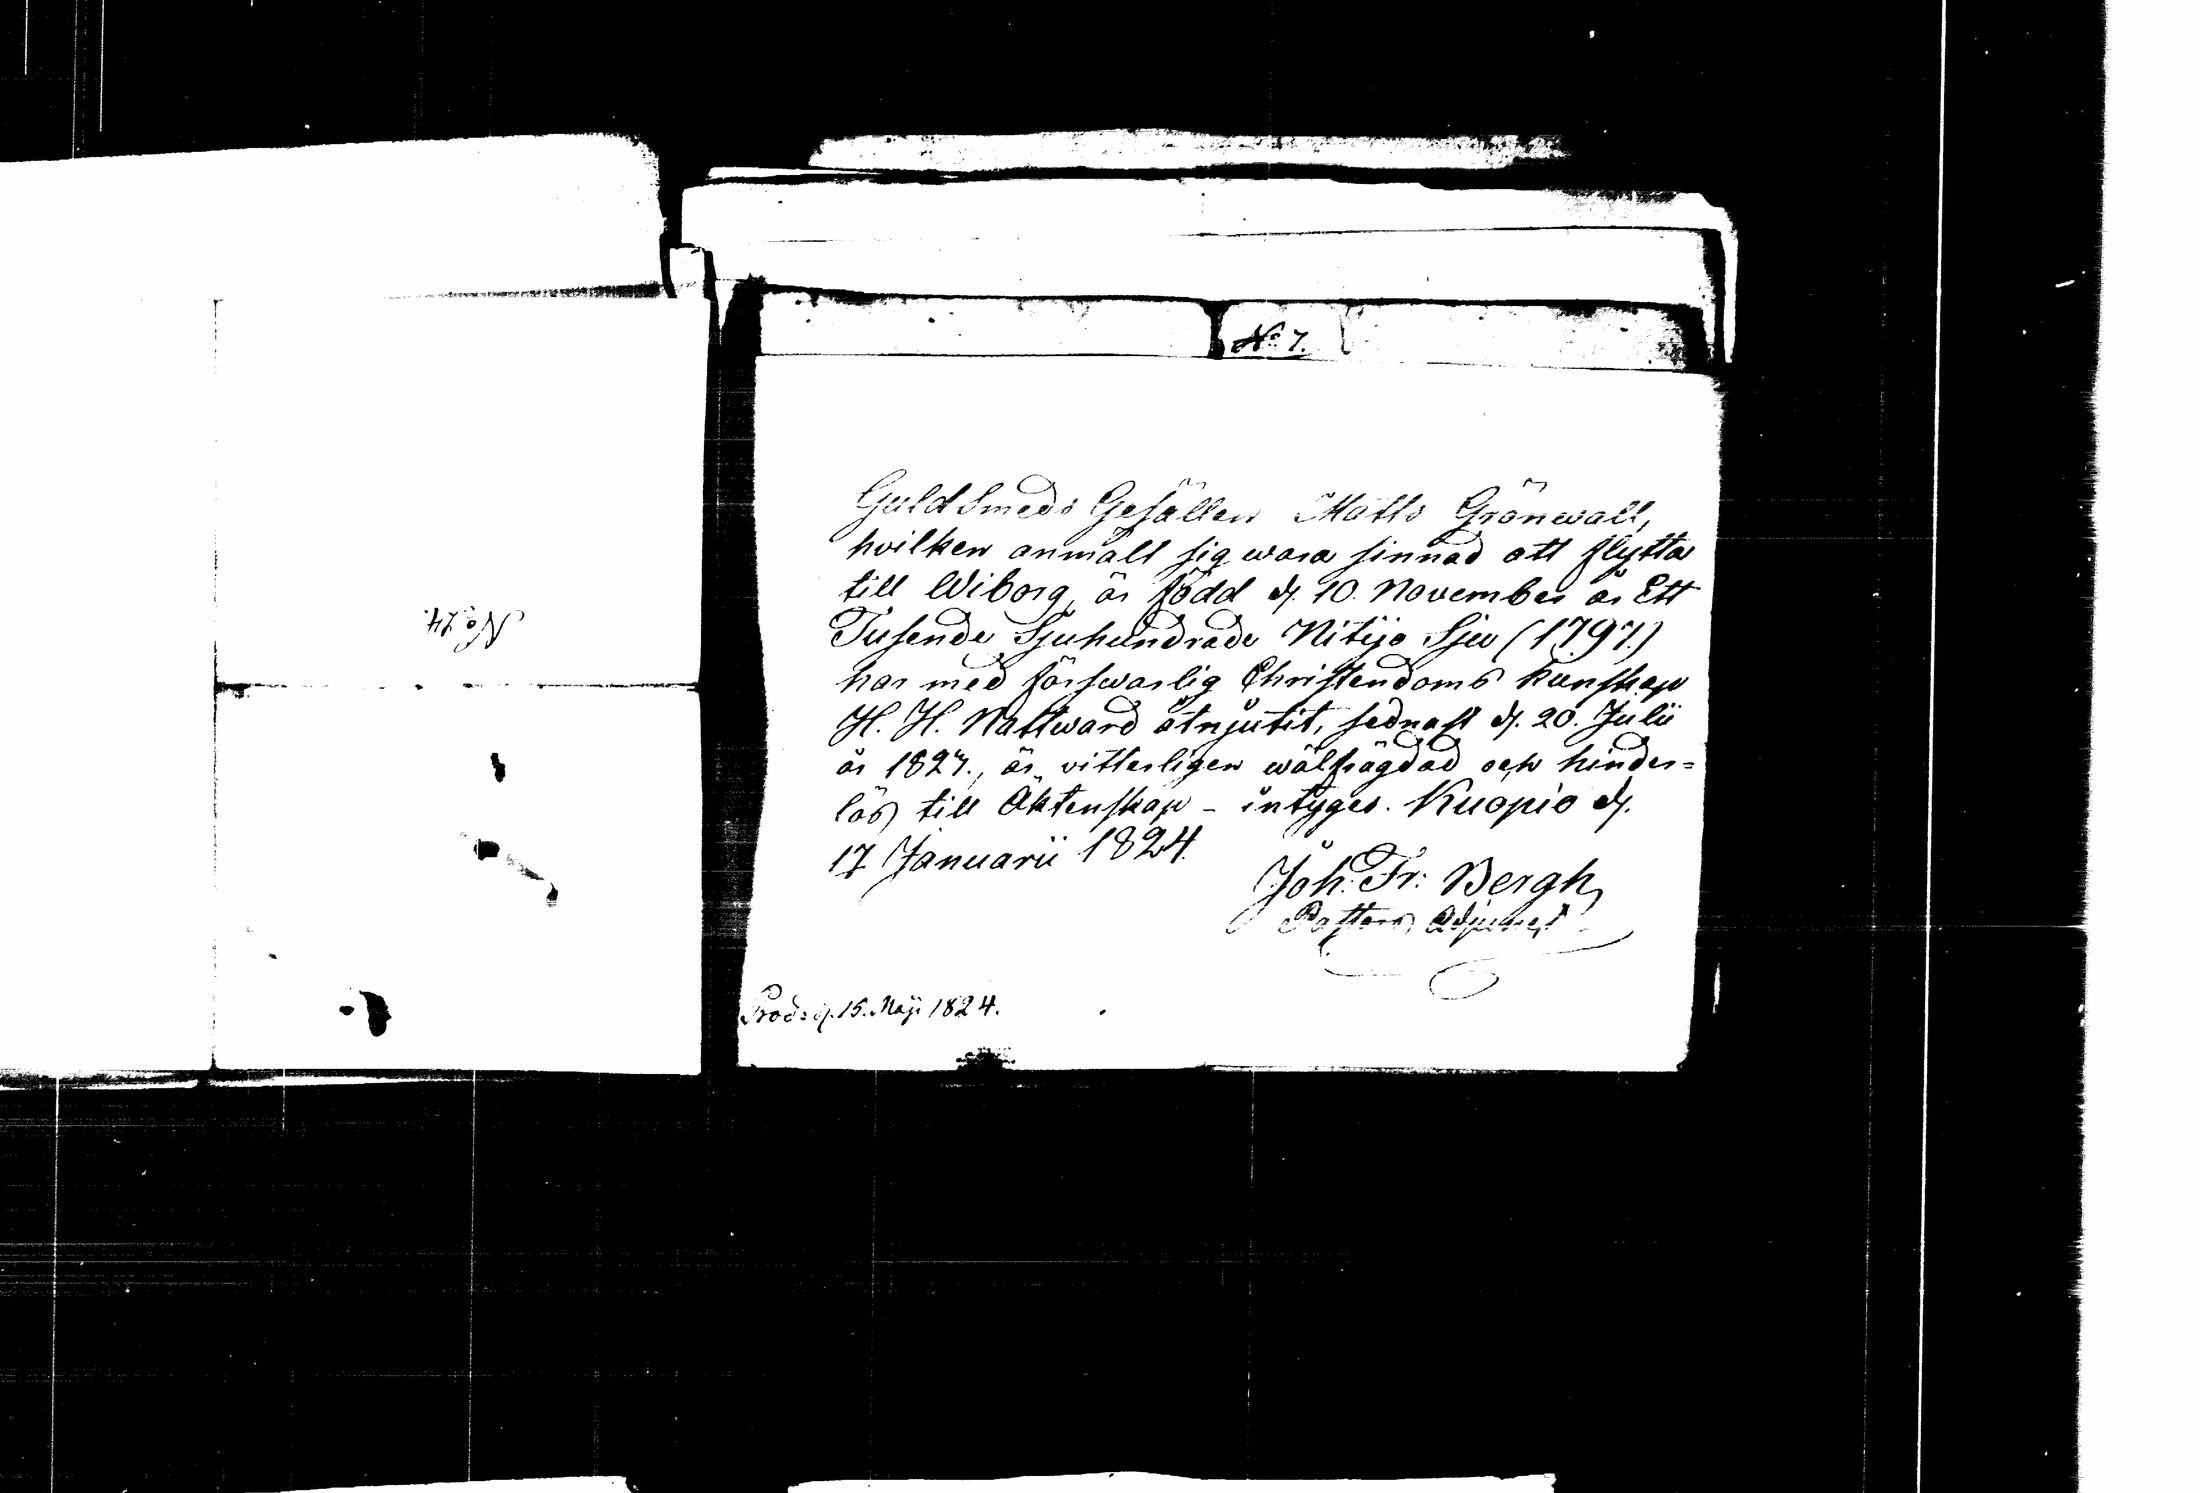 No 74.
No 7.
Guld Smeds Gesällen Matts Grönwall,
hvilken anmält sig wara sinnad att flytta
till Wiborg, är född d. 10. November år Ett
Tusende Sjuhundrade Nitijo Sju (1797.)
har med förswarlig Christendoms kunskap
H. H. Nattward åtnjutit, sednast d. 20. Julii
år 1823., är vitterligen wälfrägdad och hinder=
lös till Äktenskap - intyges. Kuopio d.
17 Januarii 1824.
Joh: Fr: Bergh
Pastors Adjunct
Prod: d. 15. Maji 1824.